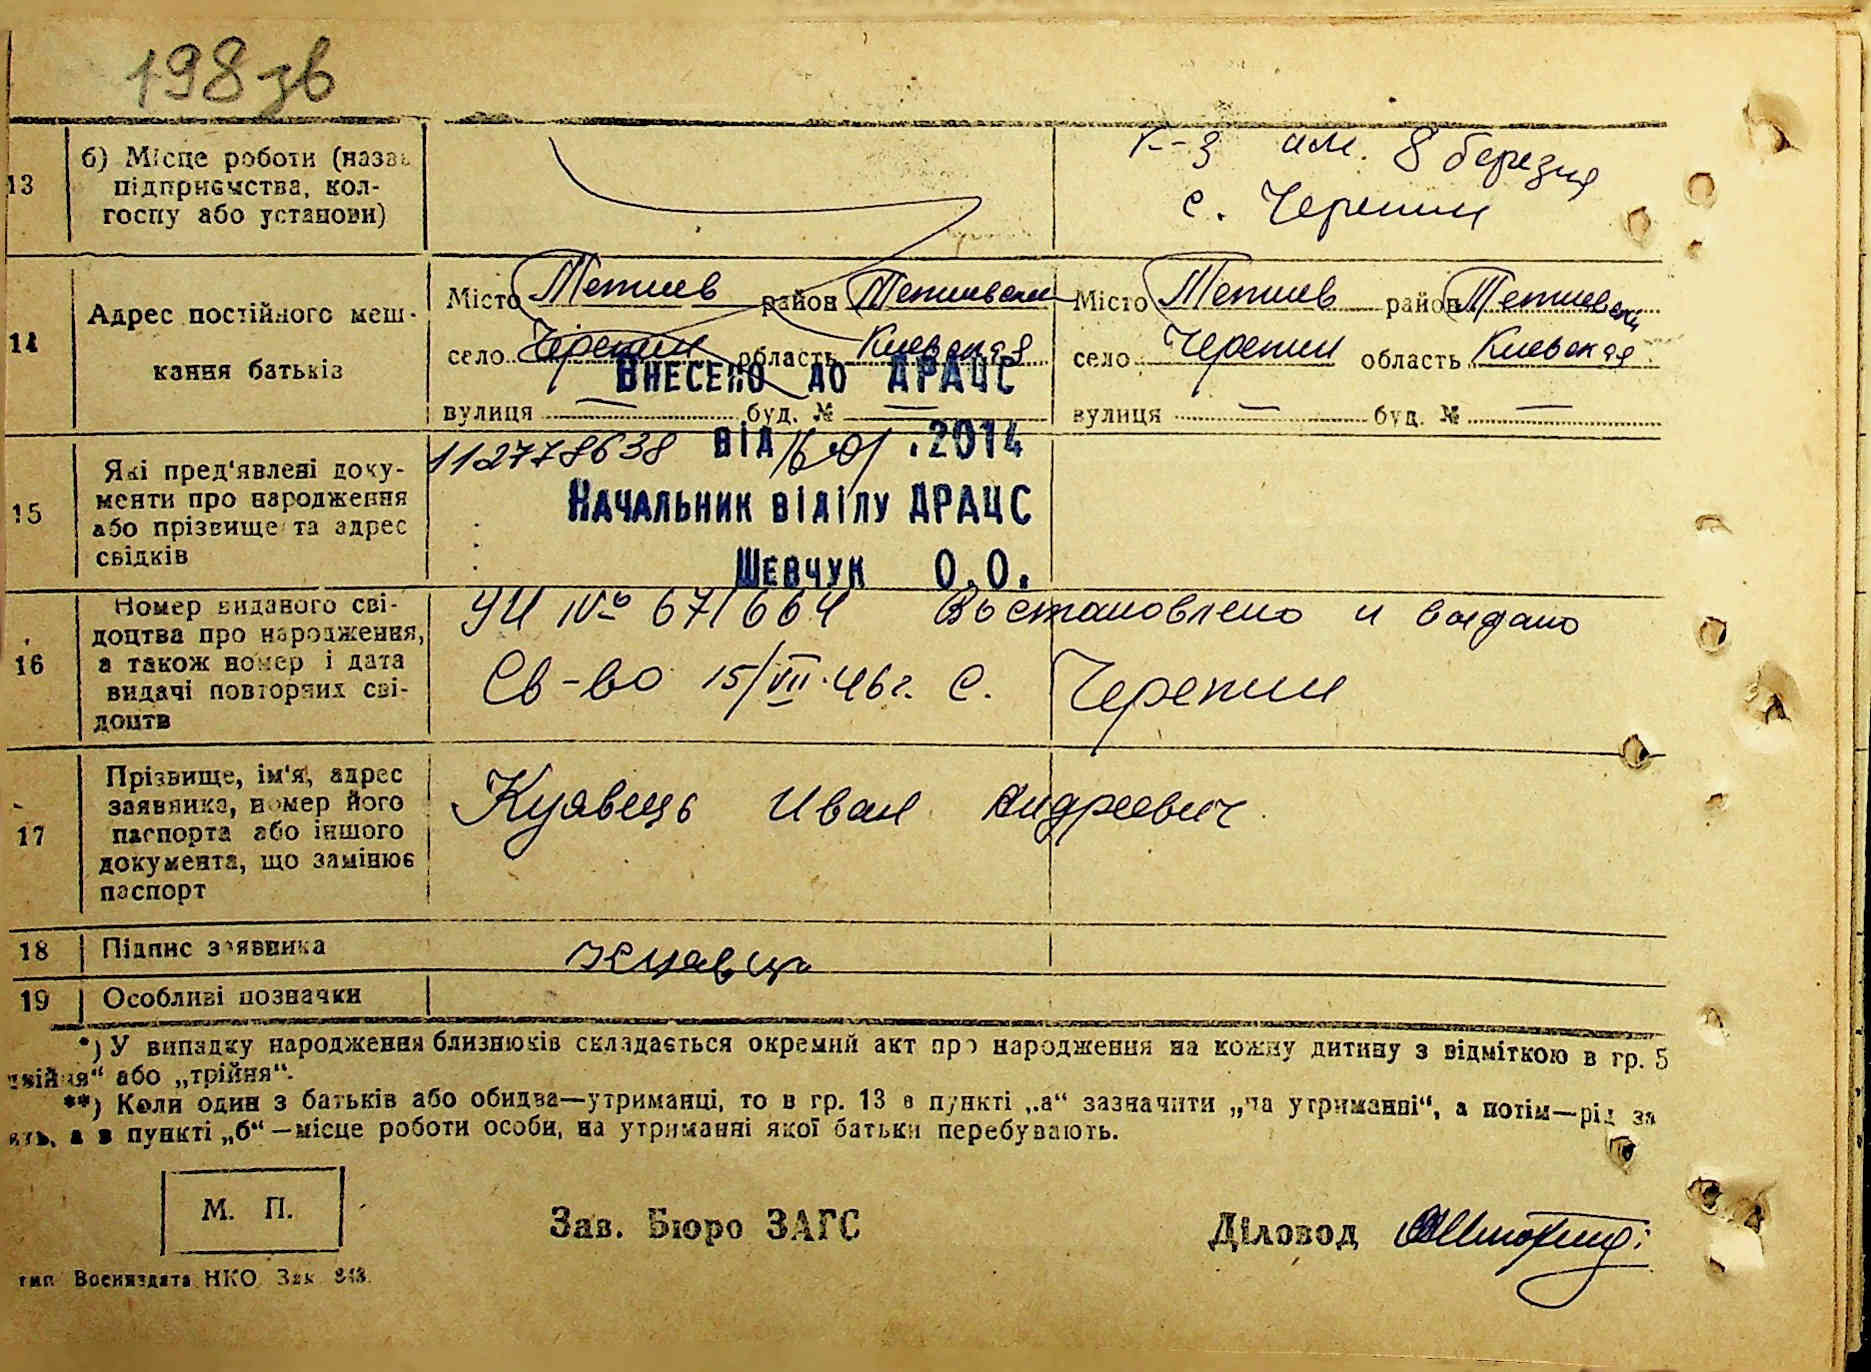 198 зв
13
б) Місце роботи (назва
підприємства, кол-
госпу або установи)
К-з им. 8 березня
с. Черепин
14
Адрес постійного меш-
кання батьків
Місто Тетиев район Тетиевский
село Черепин область Киевская
вулиця — буд. № —
Місто Тетиев район Тетиевский
село Черепин область Киевская
вулиця — буд. № —
Внесено до ДРАЦС
від 16.01.2014
Начальник відділу ДРАЦС
Шевчук О.О.
15
Які пред'явлені доку-
менти про народження
або прізвище та адрес
свідків
112778638
16
Номер виданого сві-
доцтва про народження,
а також номер і дата
видачі повторних сві-
доцтв
УЦ № 671664 Востановлено и выдано
Св-во 15/VII.46г. с. Черепин
17
Прізвище, ім'я, адрес
заявника, номер його
паспорта або іншого
документа, що замінює
паспорт
Куявець Иван Андреевич
18
Підпис заявника
Куявец
19
Особливі позначки
*) У випадку народження близнюків складається окремий акт про народження на кожну дитину з відміткою в гр. 5
двійня" або „трійня".
**) Коли один з батьків або обидва—утриманці, то в гр. 13 в пункті „а" зазначити „на утриманні", а потім—рід за
ять, а в пункті „б"—місце роботи особи, на утриманні якої батьки перебувають.
М. П.
Зав. Бюро ЗАГС
Діловод
тип Воениздата НКО Зак 843